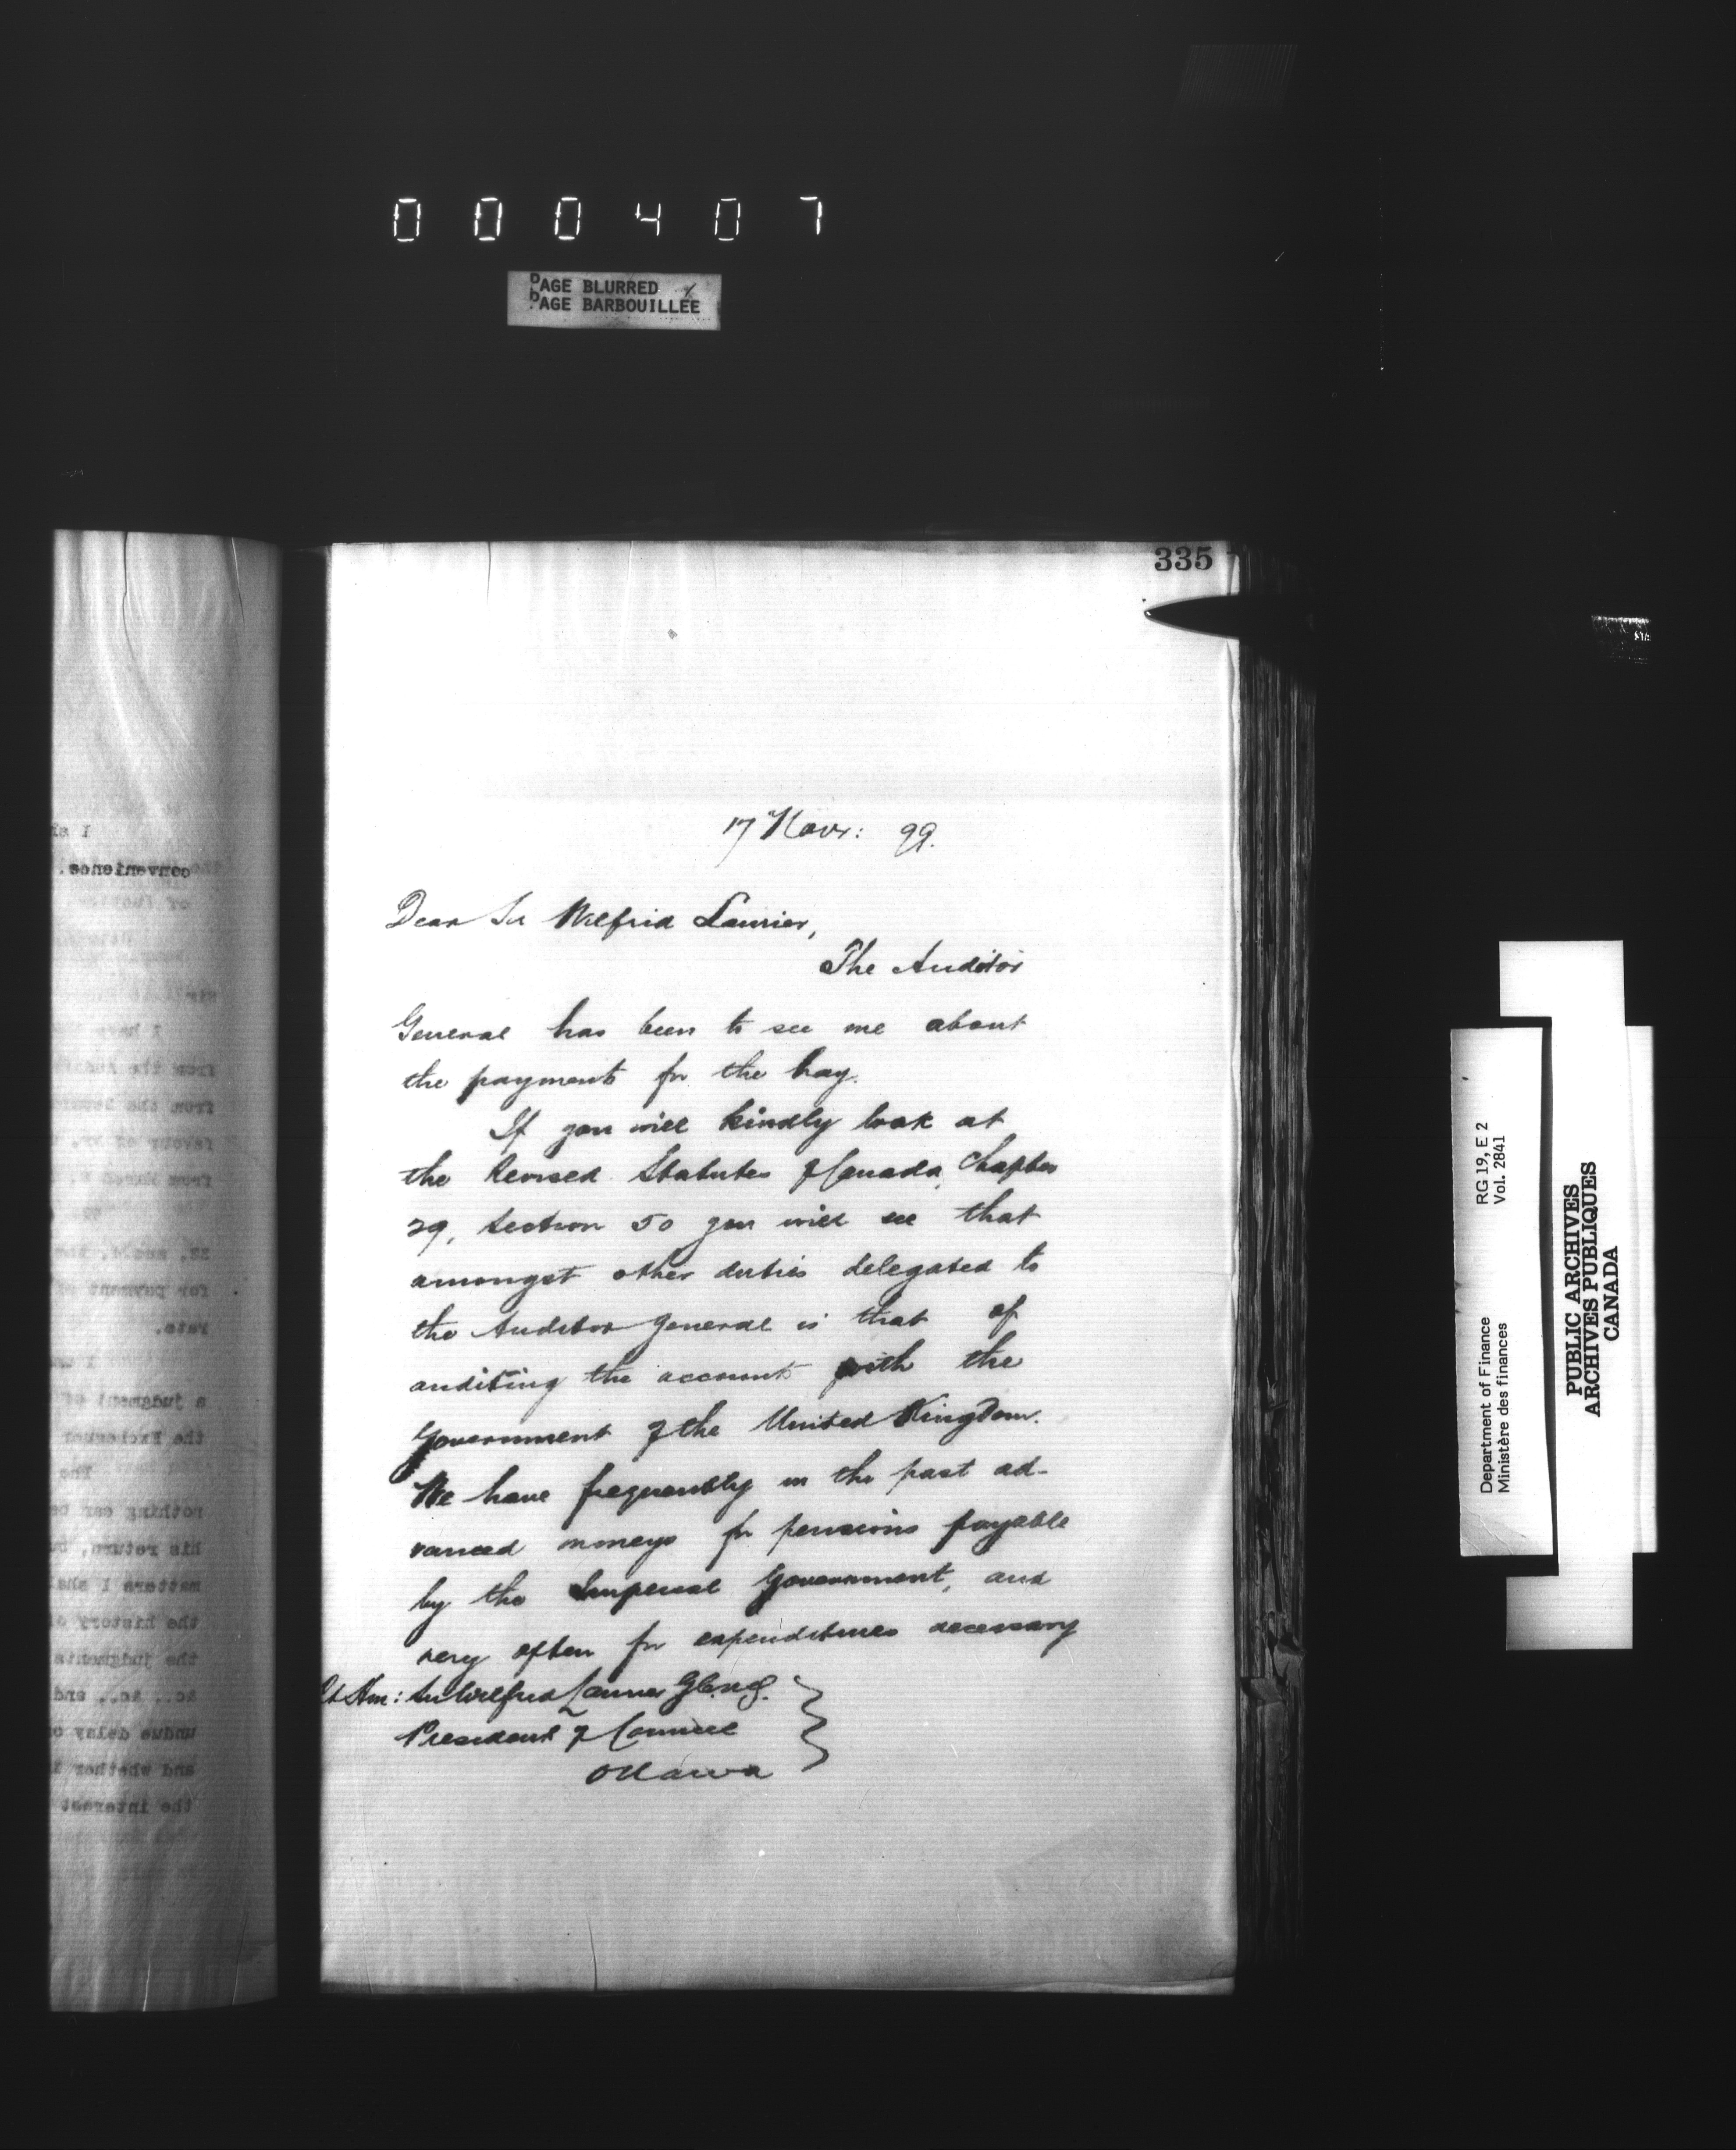 000407
PAGE BLURRED
PAGE BARBOUILLEE
335
17 Novr: 99.
Dear Sir Wilfrid Laurier,
The Auditor
General has been to see me about
the payments for the hay.
If you will kindly look at
the Revised Statutes of Canada, Chapter
29, Section 50 you will see that
amongst other duties delegated to
the Auditor General is that of
auditing the accounts with the
Government of the United Kingdom.
We have frequently in the past ad-
vanced moneys for pensions payable
by the Imperial Government, and
very often for expenditures necessary
Rt Hon: Sir Wilfrid Laurier G.C.M.G.
President of Council
Ottawa
convenience.
of Justice
I have
from the
from the
favour of
from March
for payment
rate.
a judgment of
the Exchequer
The
nothing can be
his return,
matters I shal
the history of
the judgments
&c., &c., and
undue delay
and whether
the interest
Department of Finance RG 19, E 2
Ministère des finances Vol. 2841
PUBLIC ARCHIVES
ARCHIVES PUBLIQUES
CANADA